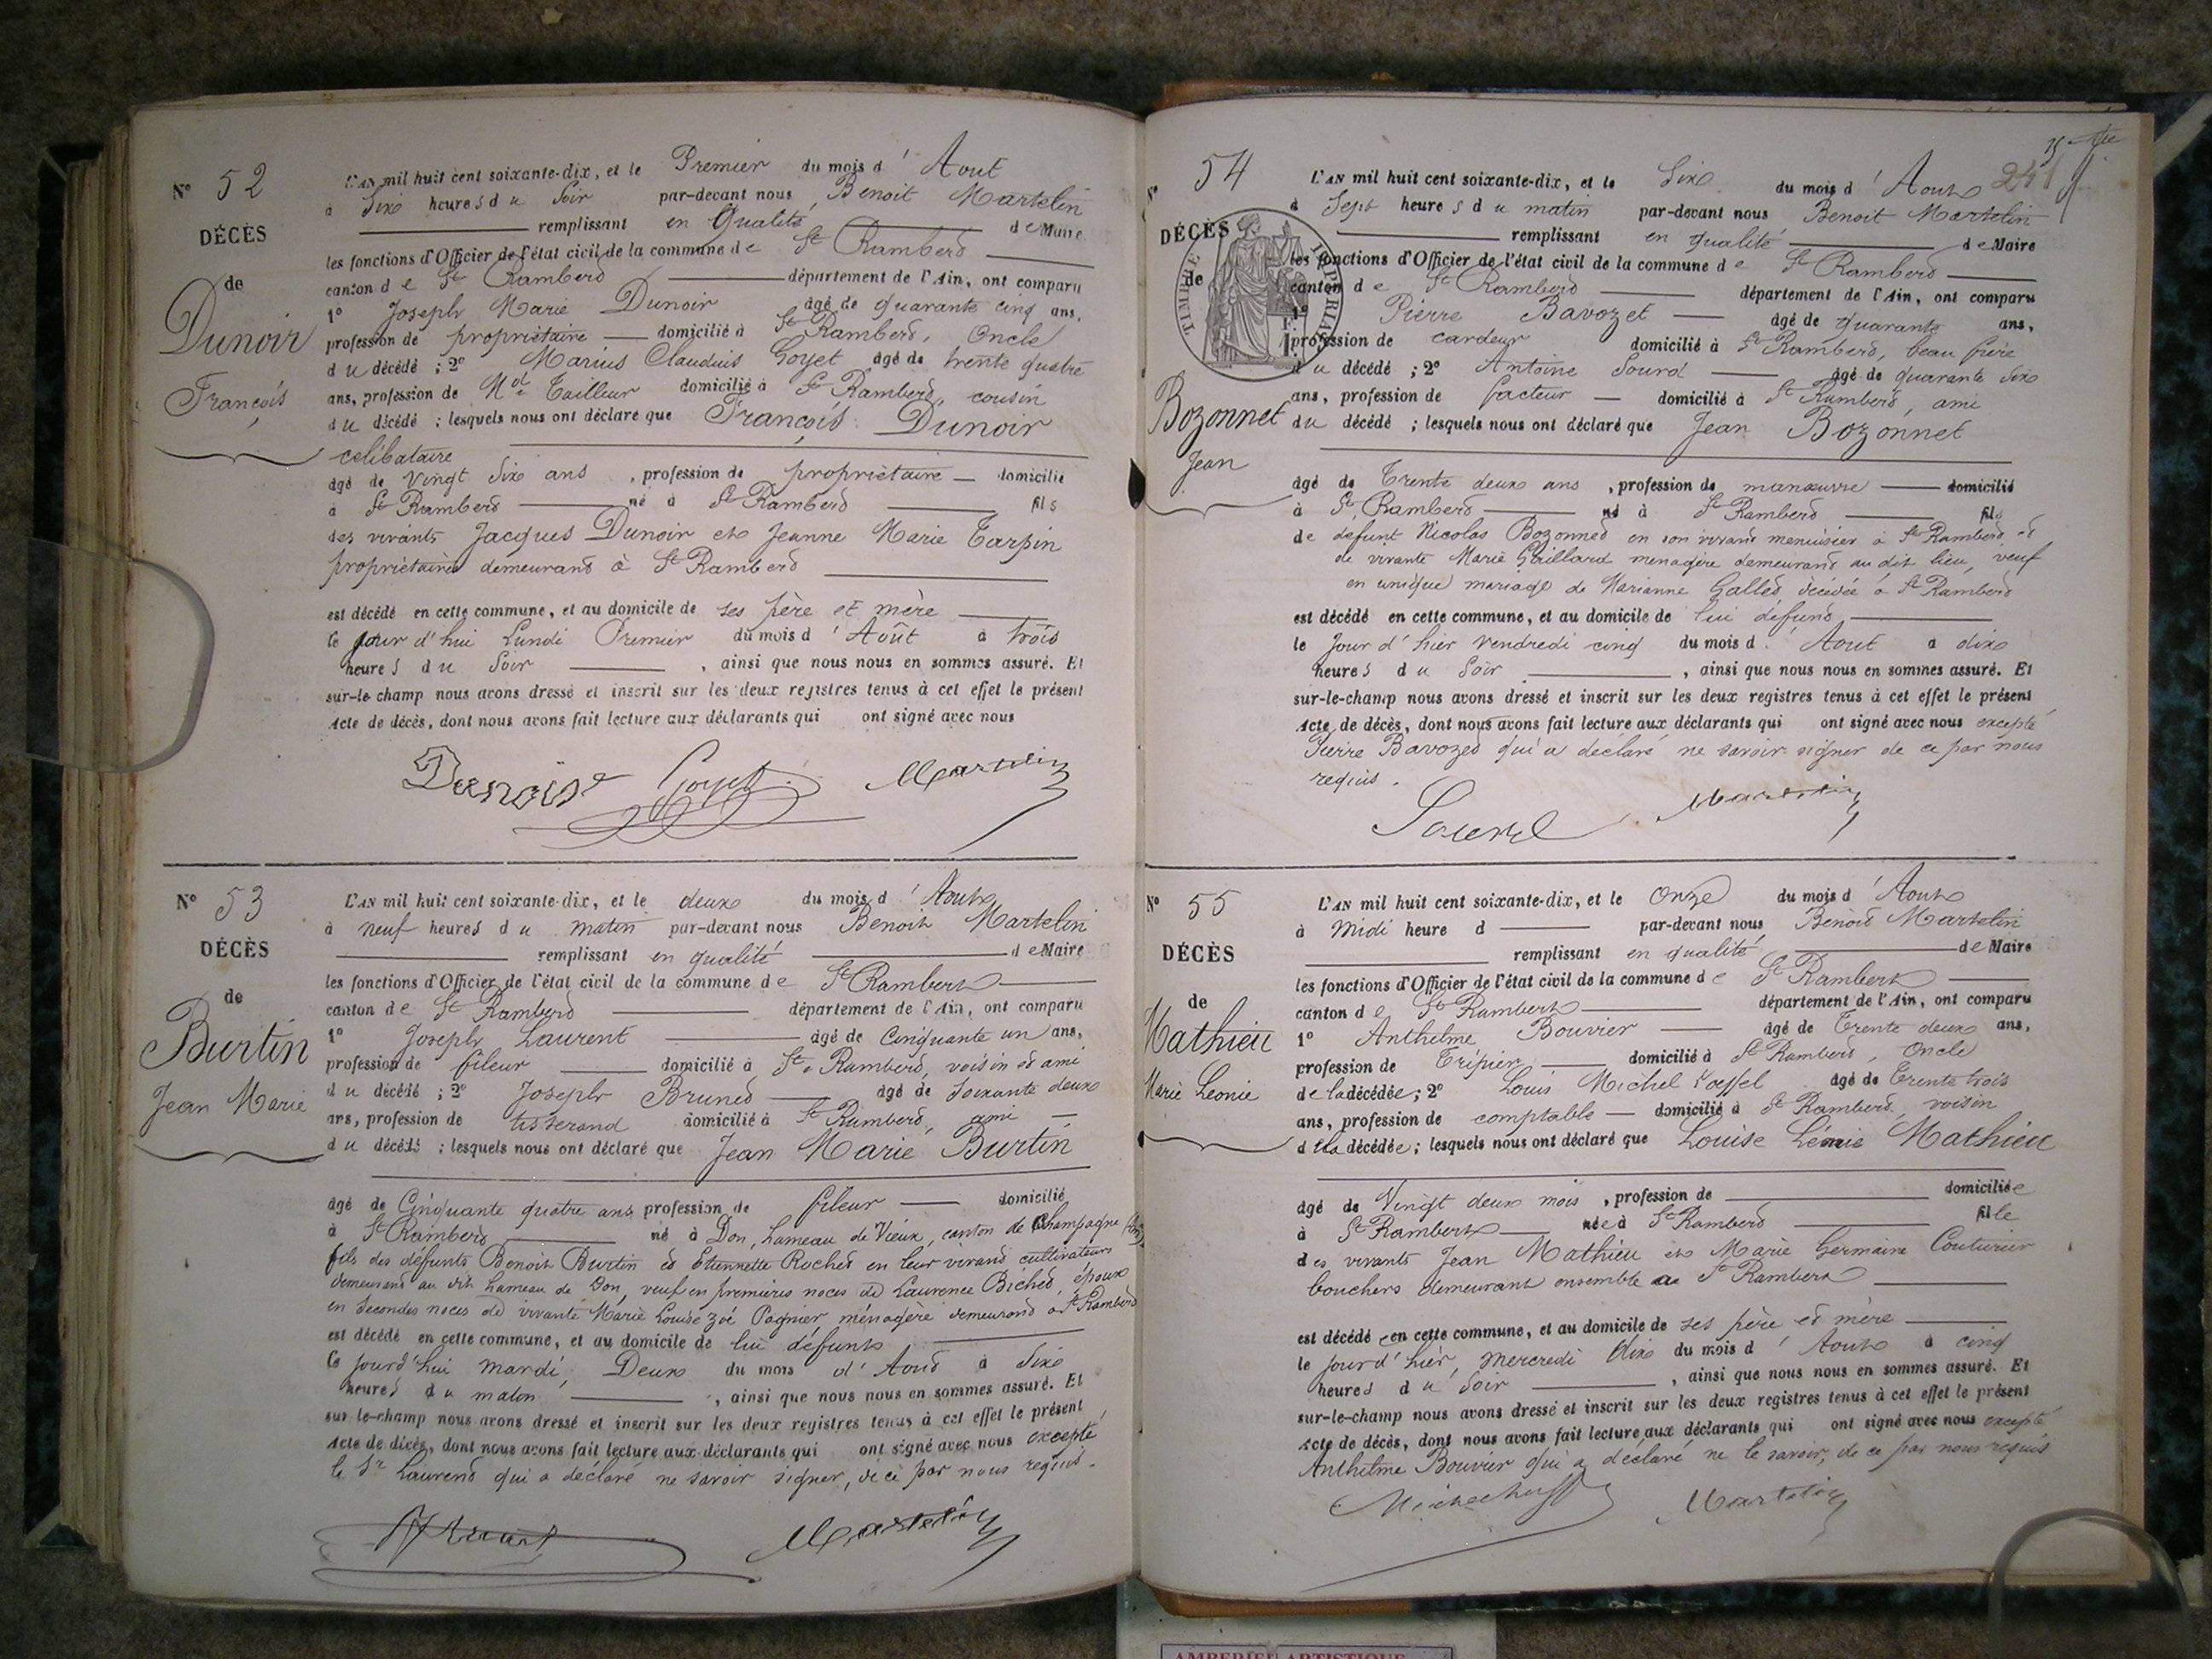 N° 52
DÉCÈS
de
Dunoir
François
L'AN mil huit cent soixante-dix, et le Premier du mois d'Aout
à Six heures du Soir par-devant nous, Benoit Martelin
remplissant en Qualité de Maire
les fonctions d'Officier de l'état civil de la commune de St Ramberd
canton de St Ramberd département de l'Ain, ont comparu
1° Joseph Marie Dunoir âgé de quarante cinq ans,
profession de propriétaire domicilié à St Ramberd, Oncle
du décédé ; 2° Marius Claudius Goyet âgé de trente quatre
ans, profession de Md Tailleur domicilié à St Ramberd, cousin
du décédé ; lesquels nous ont déclaré que François Dunoir
celibataire
âgé de Vingt Six ans, profession de propriètaire domicilié
à St Ramberd né à St Ramberd fils
des vivants Jacques Dunoir et Jeanne Marie Tarpin
propriétaires demeurand à St Ramberd
est décédé en cette commune, et au domicile de ses père et mère
le jour d'hui Lundi Premier du mois d'Août à trois
heures du Soir, ainsi que nous nous en sommes assuré. Et
sur-le-champ nous avons dressé et inscrit sur les deux registres tenus à cet effet le présent
acte de décès, dont nous avons fait lecture aux déclarants qui ont signé avec nous
Goyet Martelin
N° 53
DÉCÈS
de
Burtin
Jean Marie
L'AN mil huit cent soixante-dix, et le deux du mois d'Aout
à neuf heures du matin par-devant nous Benoit Martelin
remplissant en qualité de Maire
les fonctions d'Officier de l'état civil de la commune de St Rambert
canton de St Ramberd département de l'Ain, ont comparu
1° Joseph Laurent âgé de Cinquante un ans,
profession de fileur domicilié à St Ramberd, voisin et ami
du décédé ; 2° Joseph Bruned âgé de Soixante deux
ans, profession de tisserand domicilié à St Ramberd, ami
du décédé ; lesquels nous ont déclaré que Jean Marie Burtin
âgé de Cinquante quatre ans profession de fileur domicilié
à St Ramberd né à Don, hameau de Vieux, canton de Champagne
fils des défunts Benoit Burtin et Etiennette Roched en leur vivand cultivateurs
demeurand au dit hameau de Don, veuf en premières noces de Laurence Biched, époux
en secondes noces de vivante Marie Louise Zoé Pagnier ménagère demeurand à St Ramberd
est décédé en cette commune, et au domicile de lui défunt
le jourd'hui mardi, Deux du mois d'Aout à Six
heures du matin, ainsi que nous nous en sommes assuré. Et
sur-le-champ nous avons dressé et inscrit sur les deux registres tenus à cet effet le présent
acte de décès, dont nous avons fait lecture aux déclarants qui ont signé avec nous excepté
le Sr Laurend qui a déclaré ne savoir signer, de ce par nous requis.
Martelin
241
54
DÉCÈS
de
TIMBRE IMPÉRIAL
Bozonnet
Jean
L'AN mil huit cent soixante-dix, et le Six du mois d'Aout
à Sept heures du matin par-devant nous Benoit Martelin
remplissant en qualité de Maire
les fonctions d'Officier de l'état civil de la commune de St Ramberd
canton de St Ramberd département de l'Ain, ont comparu
1° Pierre Bavozet âgé de quarante ans,
profession de cardeur domicilié à St Ramberd, beau frère
du décédé ; 2° Antoine Sourd âgé de quarante Six
ans, profession de facteur domicilié à St Ramberd, ami
du décédé ; lesquels nous ont déclaré que Jean Bozonnet
âgé de Trente deux ans, profession de manœuvre domicilié
à St Ramberd né à St Ramberd fils
de défunt Nicolas Bozonned en son vivand menuisier à St Ramberd et
de vivante Marie Gaillard menagère demeurand au dit lieu, veuf
en unique mariage de Marianne Galled, décédée à St Ramberd
est décédé en cette commune, et au domicile de lui défund
le Jour d'hier Vendredi cinq du mois d'Aout à dix
heures du Soir, ainsi que nous nous en sommes assuré. Et
sur-le-champ nous avons dressé et inscrit sur les deux registres tenus à cet effet le présent
acte de décès, dont nous avons fait lecture aux déclarants qui ont signé avec nous excepté
Pierre Bavozed qui a déclaré ne savoir signer de ce par nous
requis.
Sourd Martelin
N° 55
DÉCÈS
de
Mathieu
Marie Léonie
L'AN mil huit cent soixante-dix, et le Onze du mois d'Aout
à Midi heure d par-devant nous Benoid Martelin
remplissant en qualité de Maire
les fonctions d'Officier de l'état civil de la commune de St Rambert
canton de St Rambert département de l'Ain, ont comparu
1° Anthelme Bouvier âgé de Trente deux ans,
profession de Tripier domicilié à St Ramberd, Oncle
de la décédée ; 2° Louis Michel âgé de Trente trois
ans, profession de comptable domicilié à St Ramberd, voisin
de la décédée ; lesquels nous ont déclaré que Louise Léonie Mathieu
âgé de Vingt deux mois, profession de domiciliée
à St Rambert née à St Ramberd fille
des vivants Jean Mathieu et Marie Germaine Couturier
bouchers demeurant ensemble à St Rambert
est décédée en cette commune, et au domicile de ses père et mère
le jour d'hier, mercredi dix du mois d'Aout à cinq
heures du Soir, ainsi que nous nous en sommes assuré. Et
sur-le-champ nous avons dressé et inscrit sur les deux registres tenus à cet effet le présent
acte de décès, dont nous avons fait lecture aux déclarants qui ont signé avec nous excepté
Anthelme Bouvier qui a déclaré ne le savoir, de ce par nous requis
Martelin
AMBERIEU ARTISTIQUE